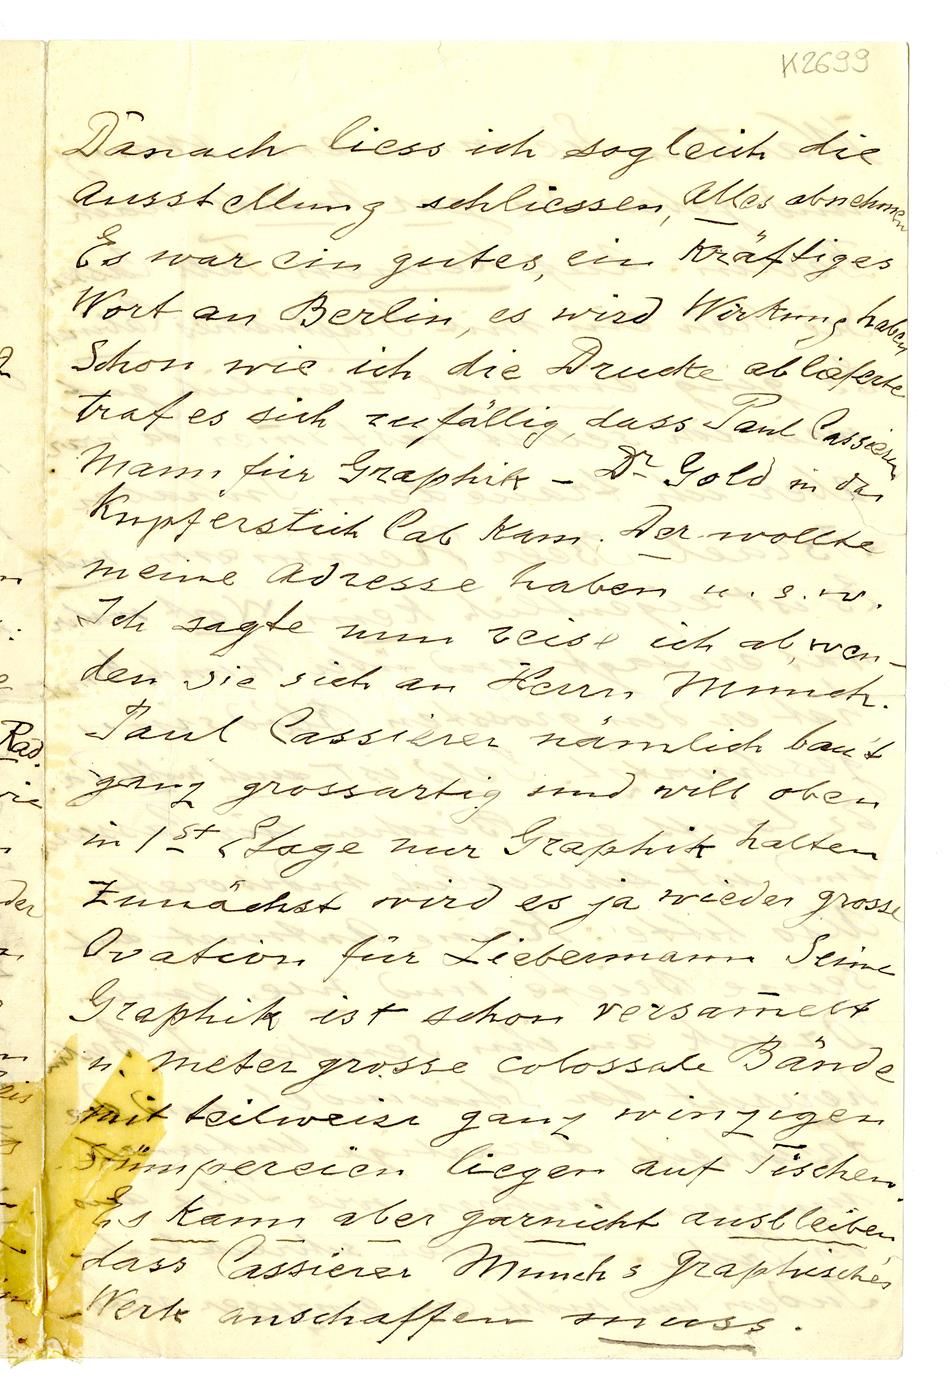 K2699
Danach liess ich sogleich die
Ausstellung schliessen, Alles abnehmen
Es war ein gutes, ein kräftiges
Wort an Berlin, es wird Wirkung haben
Schon wie ich die Drucke ablieferte
traf es sich zufällig, dass Paul Cassierers
Mann für Graphik – Dr Gold in das
Kupferstich Cab kam. Der wollte
meine Adresse haben u. s. w.
Ich sagte nun reise ich ab, wen-
den sie sich an Herrn Munch.
Paul Cassierer nämlich baut
ganz grossartig und will oben
in 1st Etage nur Graphik halten
Zunächst wird es ja wieder grosse
Ovation für Liebermann Seine
Graphik ist schon versam̅elt
u. meter grosse colossale Bände
mit teilweise ganz winzigen
Stümpereien liegen auf Tischen.
Es kann aber garnicht ausbleiben,
dass Cassierer Munchs graphisches
Werk anschaffen muss.
Rad.
der